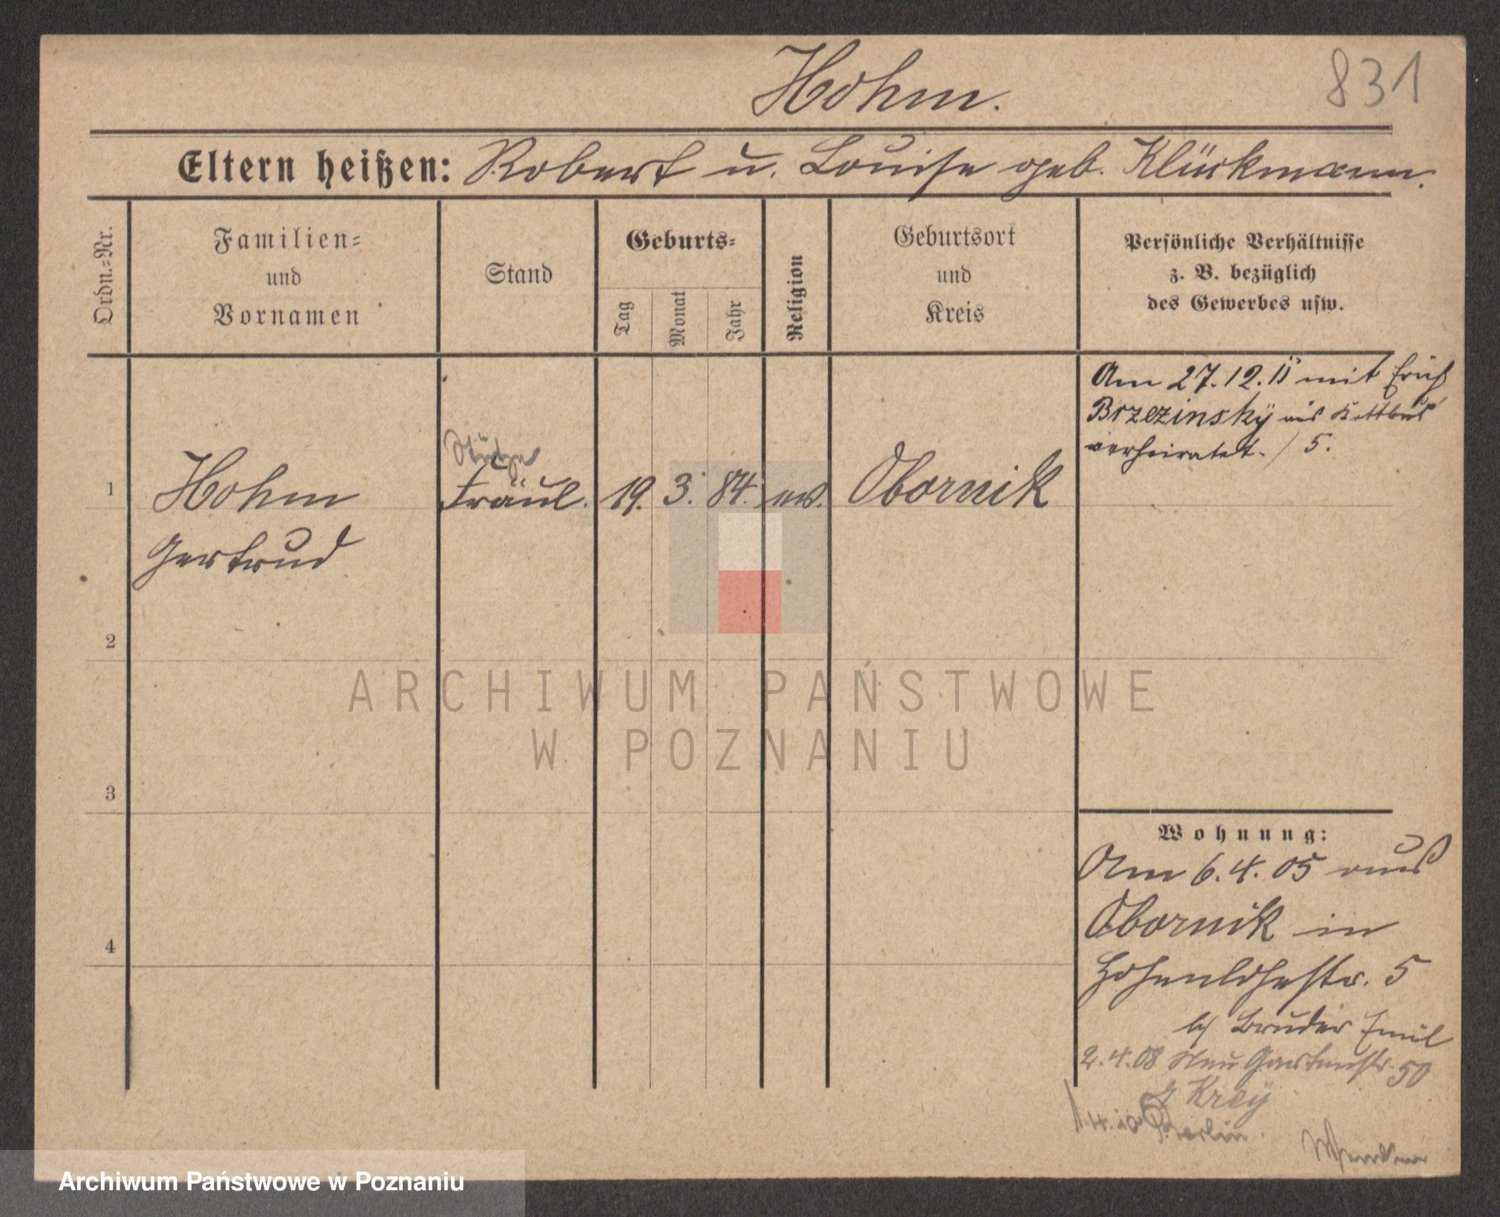 831
Hohm.
Eltern heißen: Robert u. Louise geb. Klückmann.
Ordn.-Nr.
Familien-
und
Vornamen
Stand
Geburts-
Tag
Monat
Jahr
Religion
Geburtsort
und
Kreis
Persönliche Verhältnisse
z. B. bezüglich
des Gewerbes usw.
Am 27.12.11 mit Erich
Brzezinsky aus Kottbus
verheiratet. / 5.
Stütze
1 Hohm Fräul. 19. 3. 84. ev. Obornik
Gertrud
2
3
4
Wohnung:
Am 6.4.05 aus
Obornik in
Hohenlohestr. 5
b/ Bruder Emil
2.4.08 Neue Gartenstr. 50
Krey
1.4.10 Berlin.
ARCHIWUM PAŃSTWOWE
W POZNANIU
Archiwum Państwowe w Poznaniu